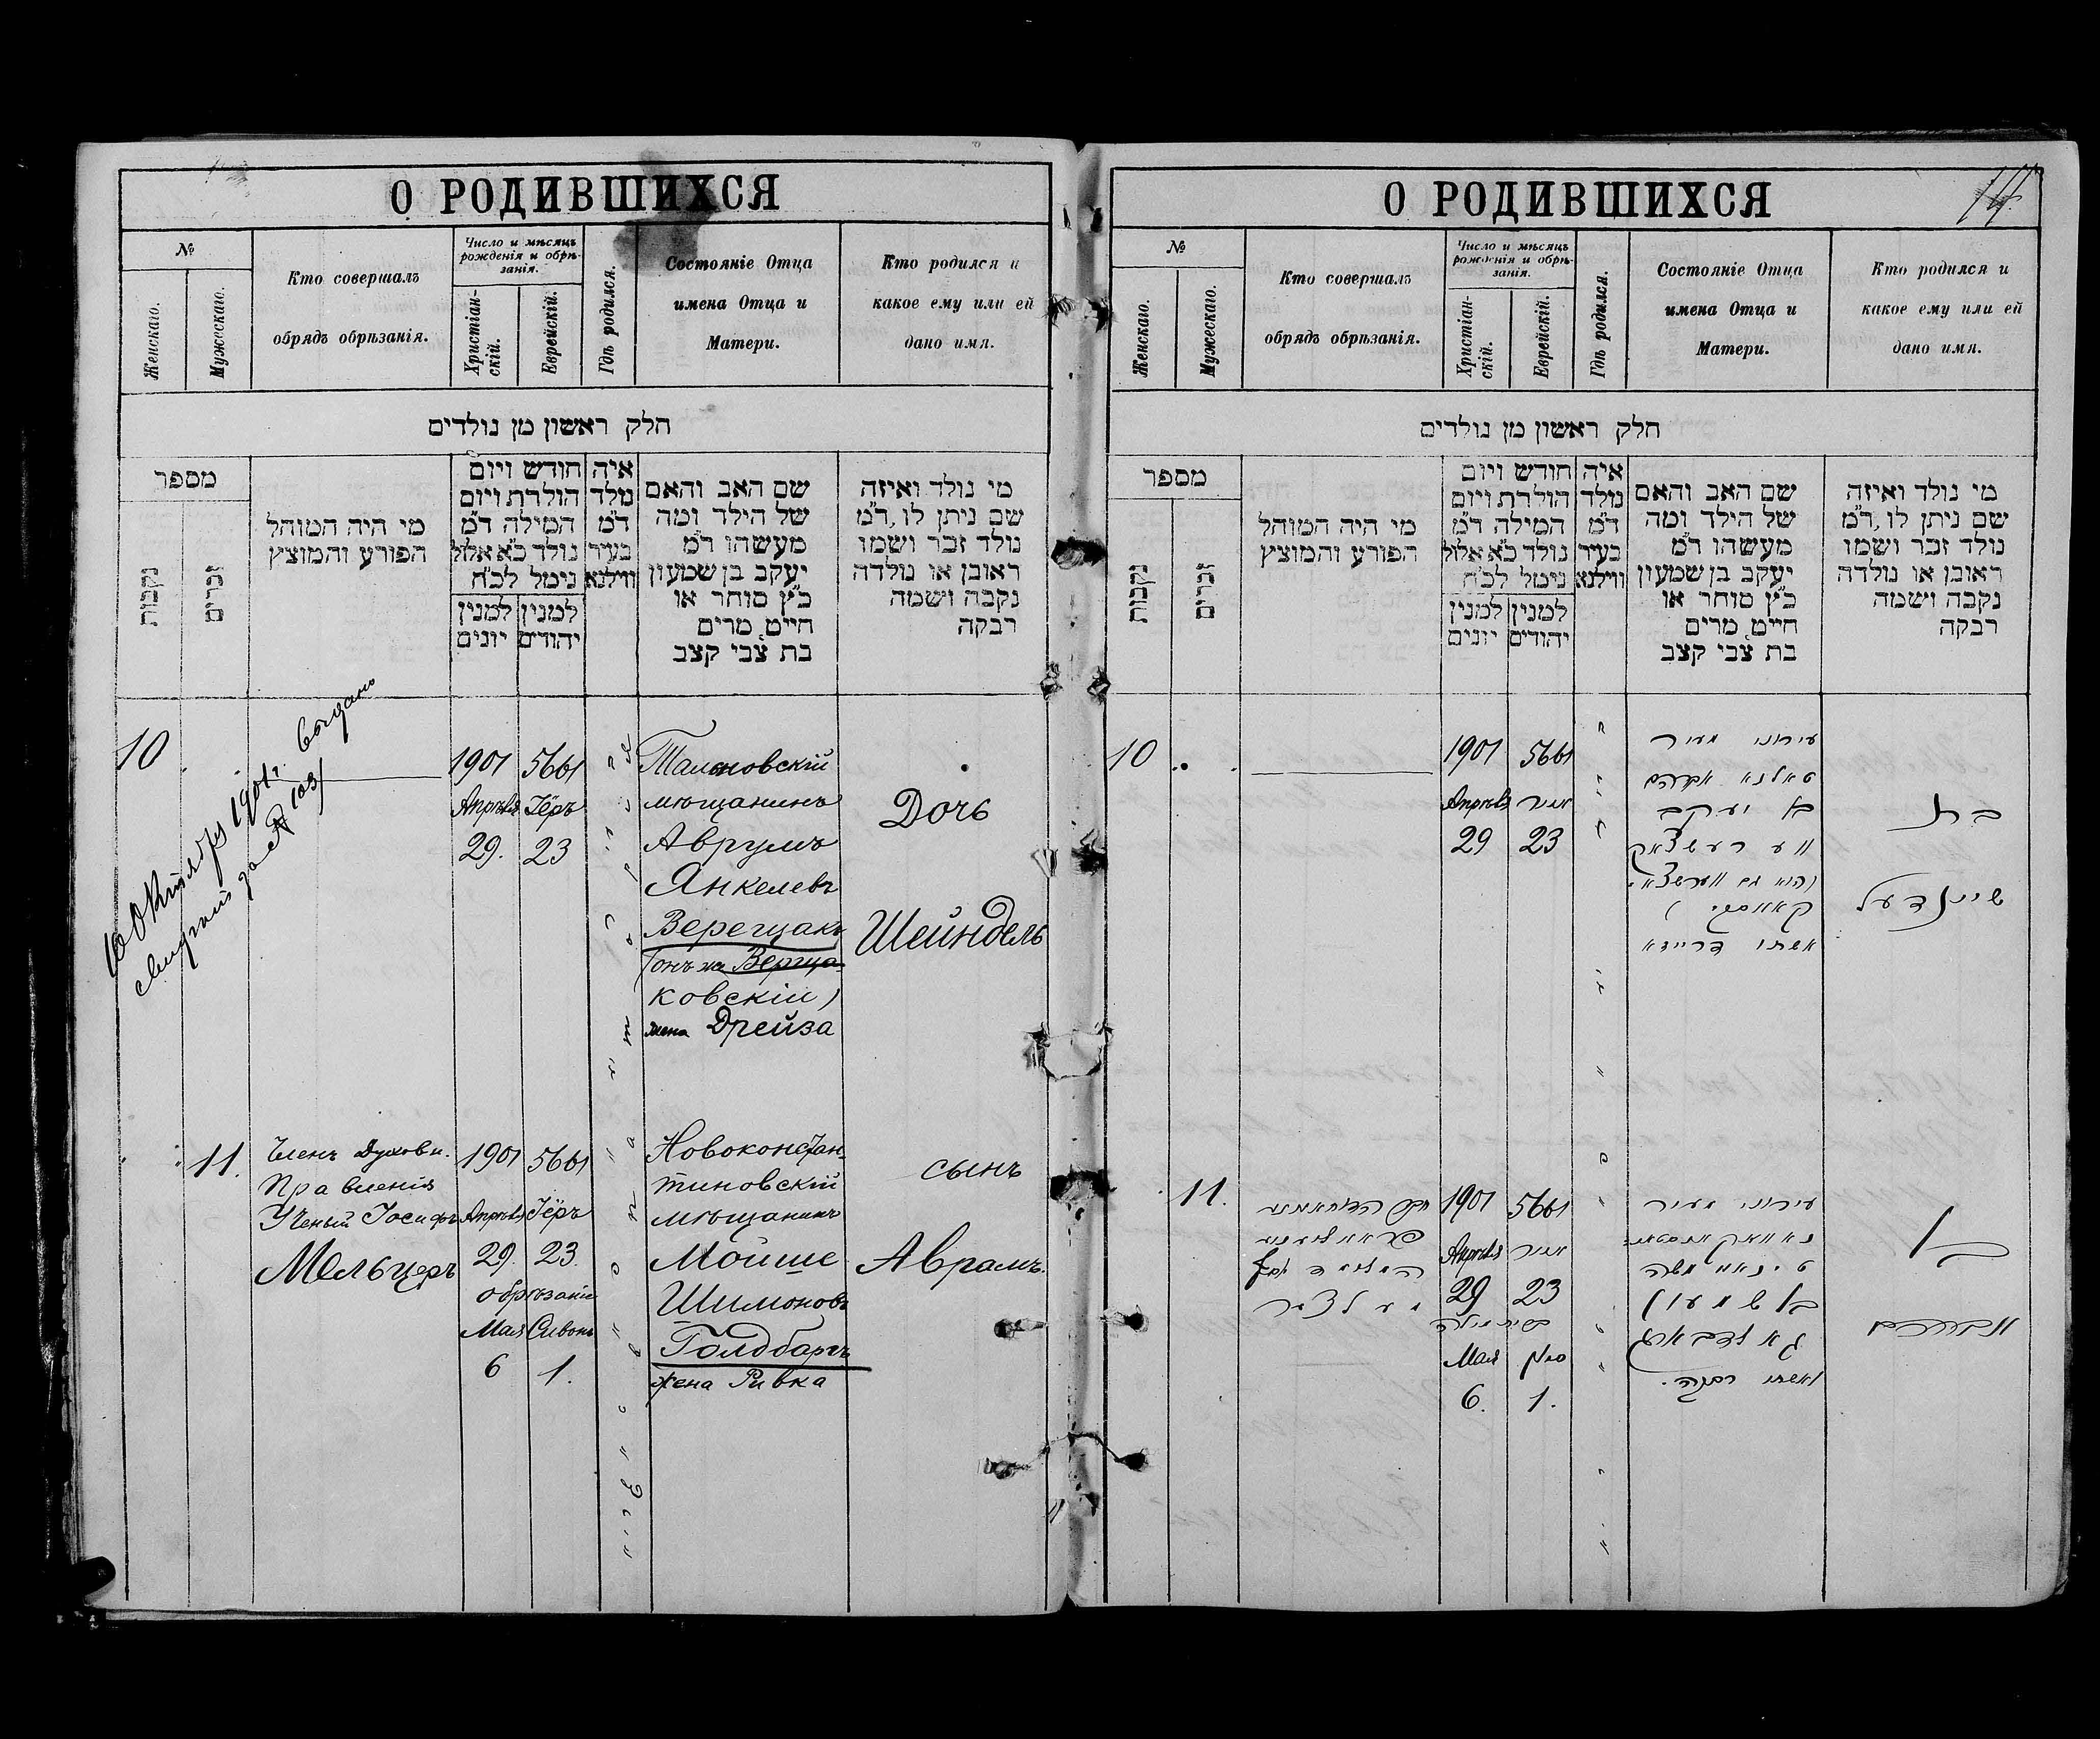 О РОДИВШИХСЯ
№
Женскаго.
Мужескаго.
Кто совершалъ
обрядъ обрѣзанія.
Число и мѣсяцъ
рожденія и обрѣ-
занія.
Христіан-
скій.
Еврейскій.
Гдѣ родился.
Состояніе Отца
имена Отца и
Матери.
Кто родился и
какое ему или ей
дано имя.
חלק ראשון מן נולדים
מספר
נקבות
זכרים
מי היה המוהל
הפורע והמוצץ
חודש ויום
הולדת ויום
המילה ד"מ
נולד כ"א אלול
נימל לכ"ח
למנין יהודים
למנין יונים
איה
נולד
ד"מ
בעיר
ווילנא
שם האב והאם
של הילד ומה
מעשהו ד"מ
יעקב בן שמעון
כ"ץ סוחר או
חייט, מרים
בת צבי קצב
מי נולד ואיזה
שם ניתן לו, ד"מ
נולד זכר ושמו
ראובן או נולדה
נקבה ושמה
רבקה
10
16 Октября 1901г. выдано
за № 103
1901 5661
Апрѣля Іёръ
29. 23
Талновскій
мѣщанинъ
Аврумъ
Янкелевъ
Верещакъ
(онъ же Верща-
ковскій)
жена Дрейза
Дочь
Шейндель
11.
Членъ Духовн.
Правленія
Ученый Іосифъ
Мельцеръ
1901 5661
Апрѣля Іёръ
29. 23.
обрѣзаніе
Мая Сивонъ
6 1.
Новоконстан-
тиновскій
мѣщанинъ
Мойше
Шимоновъ
Голдбаргъ
жена Ривка
сынъ
Аврамъ.
О РОДИВШИХСЯ
14.
№
Женскаго.
Мужескаго.
Кто совершалъ
обрядъ обрѣзанія.
Число и мѣсяцъ
рожденія и обрѣ-
занія.
Христіан-
скій.
Еврейскій.
Гдѣ родился.
Состояніе Отца
имена Отца и
Матери.
Кто родился и
какое ему или ей
дано имя.
חלק ראשון מן נולדים
מספר
נקבות
זכרים
מי היה המוהל
הפורע והמוצץ
חודש ויום
הולדת ויום
המילה ד"מ
נולד כ"א אלול
נימל לכ"ח
למנין יהודים
למנין יונים
איה
נולד
ד"מ
בעיר
ווילנא
שם האב והאם
של הילד ומה
מעשהו ד"מ
יעקב בן שמעון
כ"ץ סוחר או
חייט, מרים
בת צבי קצב
מי נולד ואיזה
שם ניתן לו, ד"מ
נולד זכר ושמו
ראובן או נולדה
נקבה ושמה
רבקה
10
1901 5661
Апрѣля אייר
29 23
עירוני מעיר
טאלנא אברהם
בן יעקב
ווערעשצאק
אשתו דרייזא
בת
שיינדעל
11.
מעלצער
1901 5661
Апрѣля אייר
29 23
ברית מילה
Мая סיון
6. 1.
עירוני מעיר
משה
בן שמעון
גאלדבארג
ואשתו רבקה.
בן
אברהם